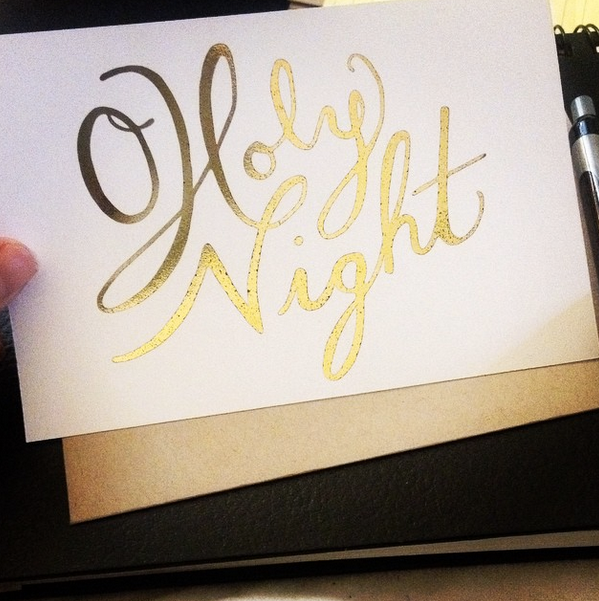 O Holy
Night